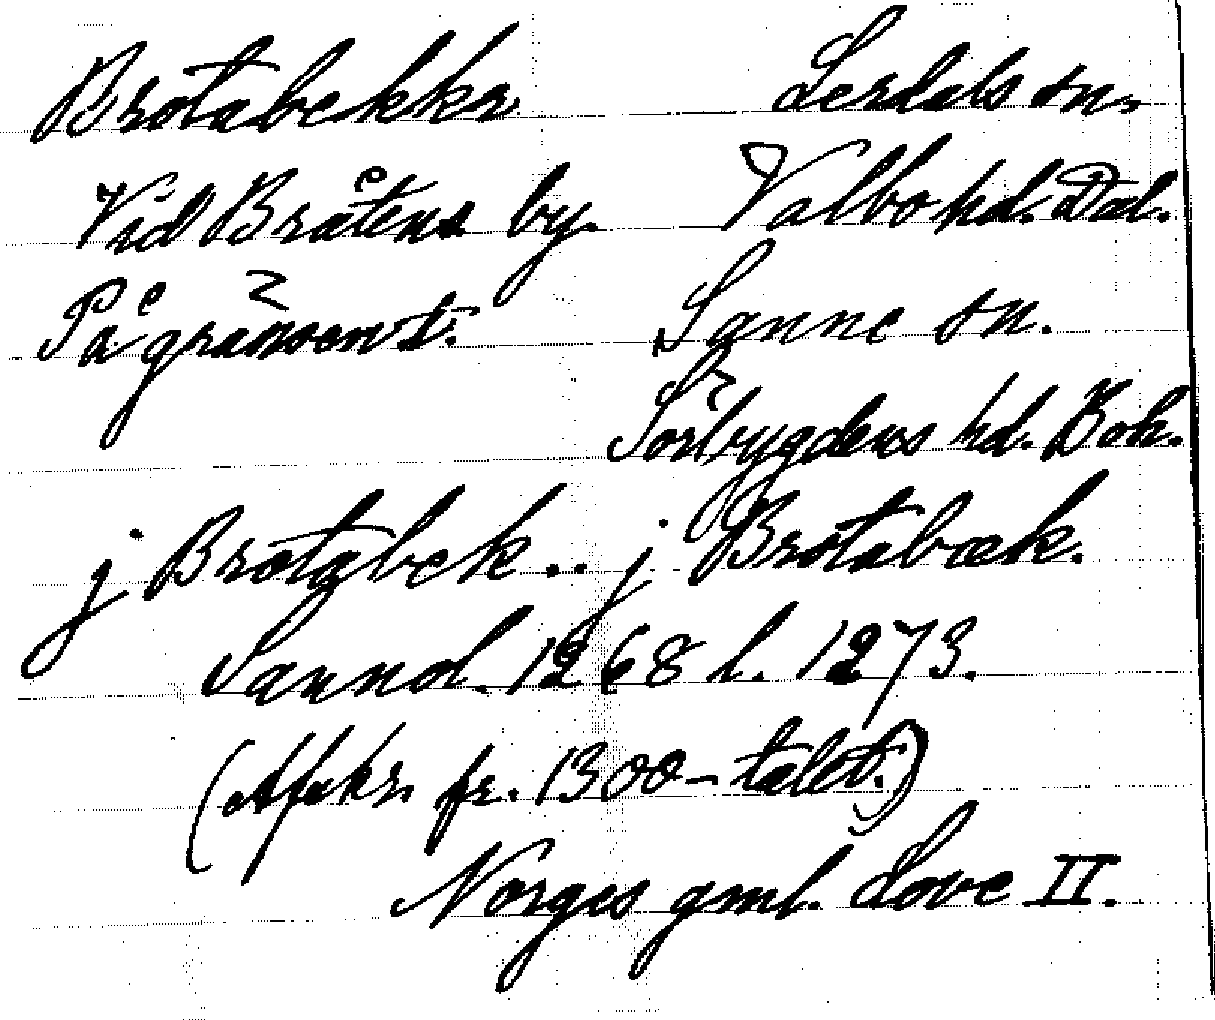 Brotabekkr Lerdals sn.
Vid Bråtens by. Valbo hd. Dal.
På gränsen t. Sanne sn.
Sörbygdens hd. Boh.
j Brotabek .. j Brotabæk.
Sannol. 1268 l. 1273.
(Afskr. fr. 1300-talet.)
Norges gml. Love II.